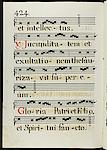 424.
et intellectus.
Jucunditatem et
exultationem thesau-
rizavit super e-
um.
Gloria Patri et Filio,
et Spiritui sancto.